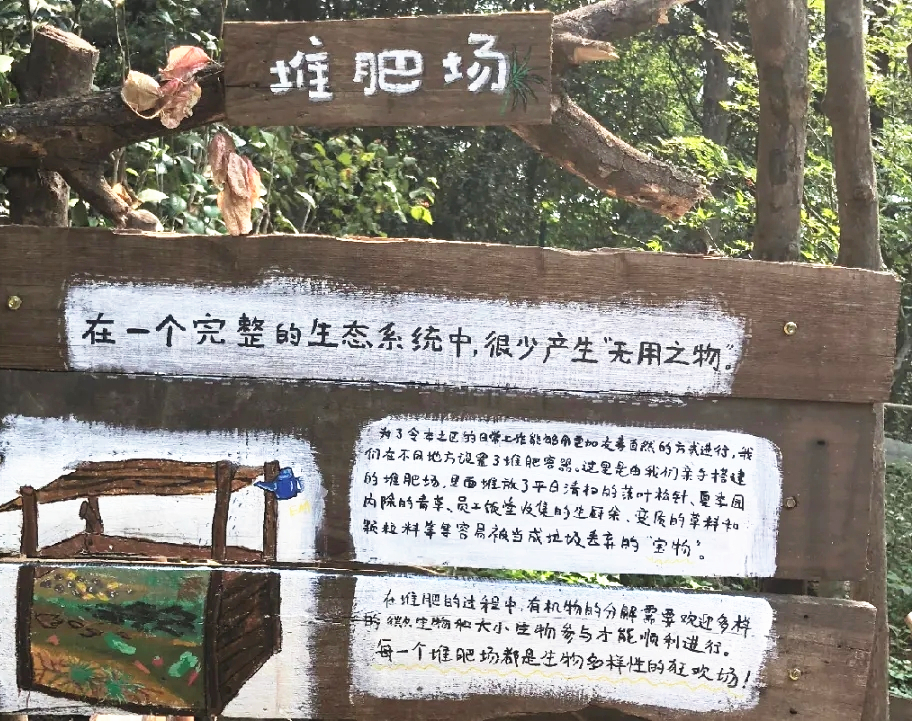 堆肥场
在一个完整的生态系统中,很少产生"无用之物"。
为了令本区的日常工作能够更加友善自然的方式进行,我
们在不同地方设置了堆肥容器。这里是由我们亲手搭建
的堆肥场,里面堆放了平日清扫的落叶松针、夏季园
内除的青草、员工饭堂收集的生厨余、变质的草料和
颗粒料等等容易被当成垃圾丢弃的"宝物"。
在堆肥的过程中,有机物的分解需要欢迎多样
的微生物和大小生物参与才能顺利进行。
每一个堆肥场都是生物多样性的狂欢场!